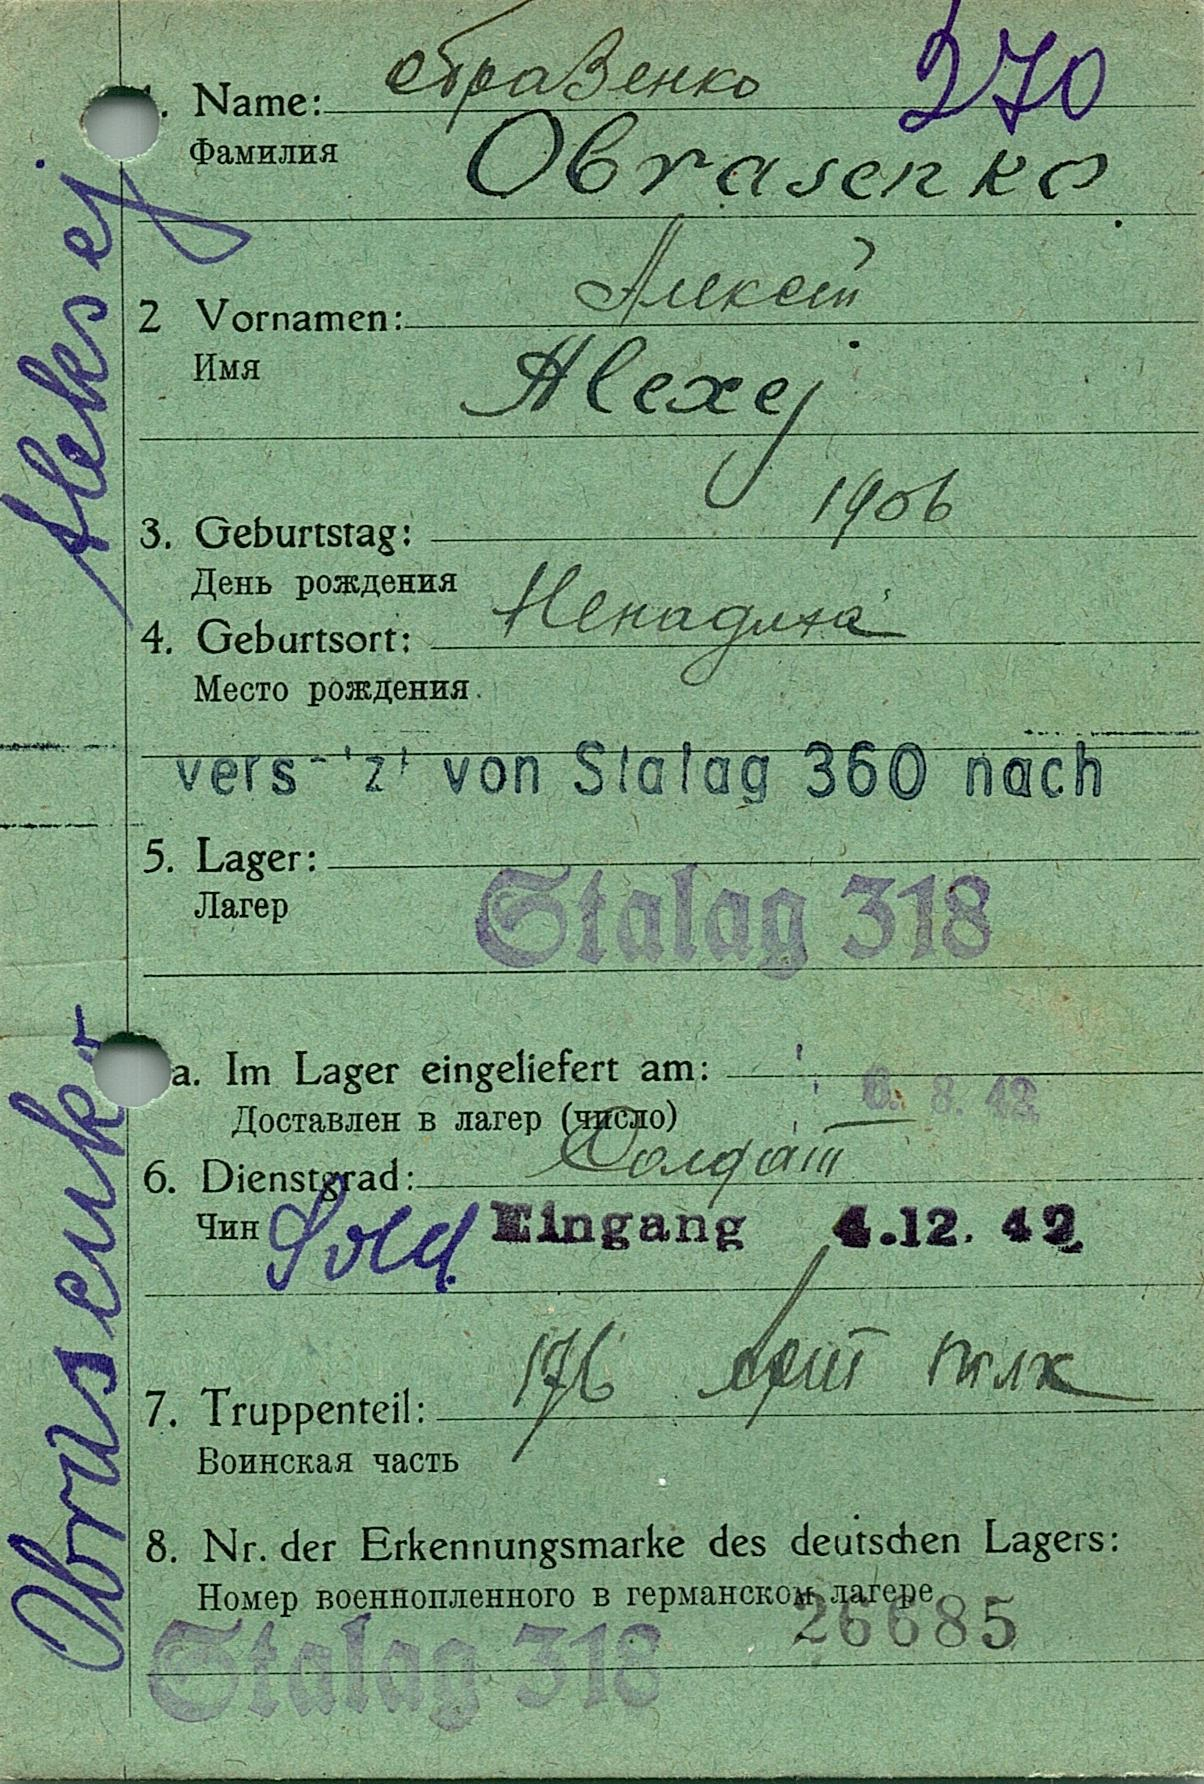 270
1. Name: ОбраЗенко
Фамилия Obrasenko
2 Vornamen: Алексей
Имя Alexej
3. Geburtstag: 1906
День рождения
4. Geburtsort:
Место рождения
vers- 'z' von Stalag 360 nach
5. Lager:
Лагер Stalag 318
a. Im Lager eingeliefert am: 6. 8. 42
Доставлен в лагер (число)
6. Dienstgrad: Солдат
Чин Sold. Eingang 4.12.42
7. Truppenteil: 176 Арт полк
Воинская часть
8. Nr. der Erkennungsmarke des deutschen Lagers:
Номер военнопленного в германском лагере
26685
Stalag 318
Obrasenko Aleksej